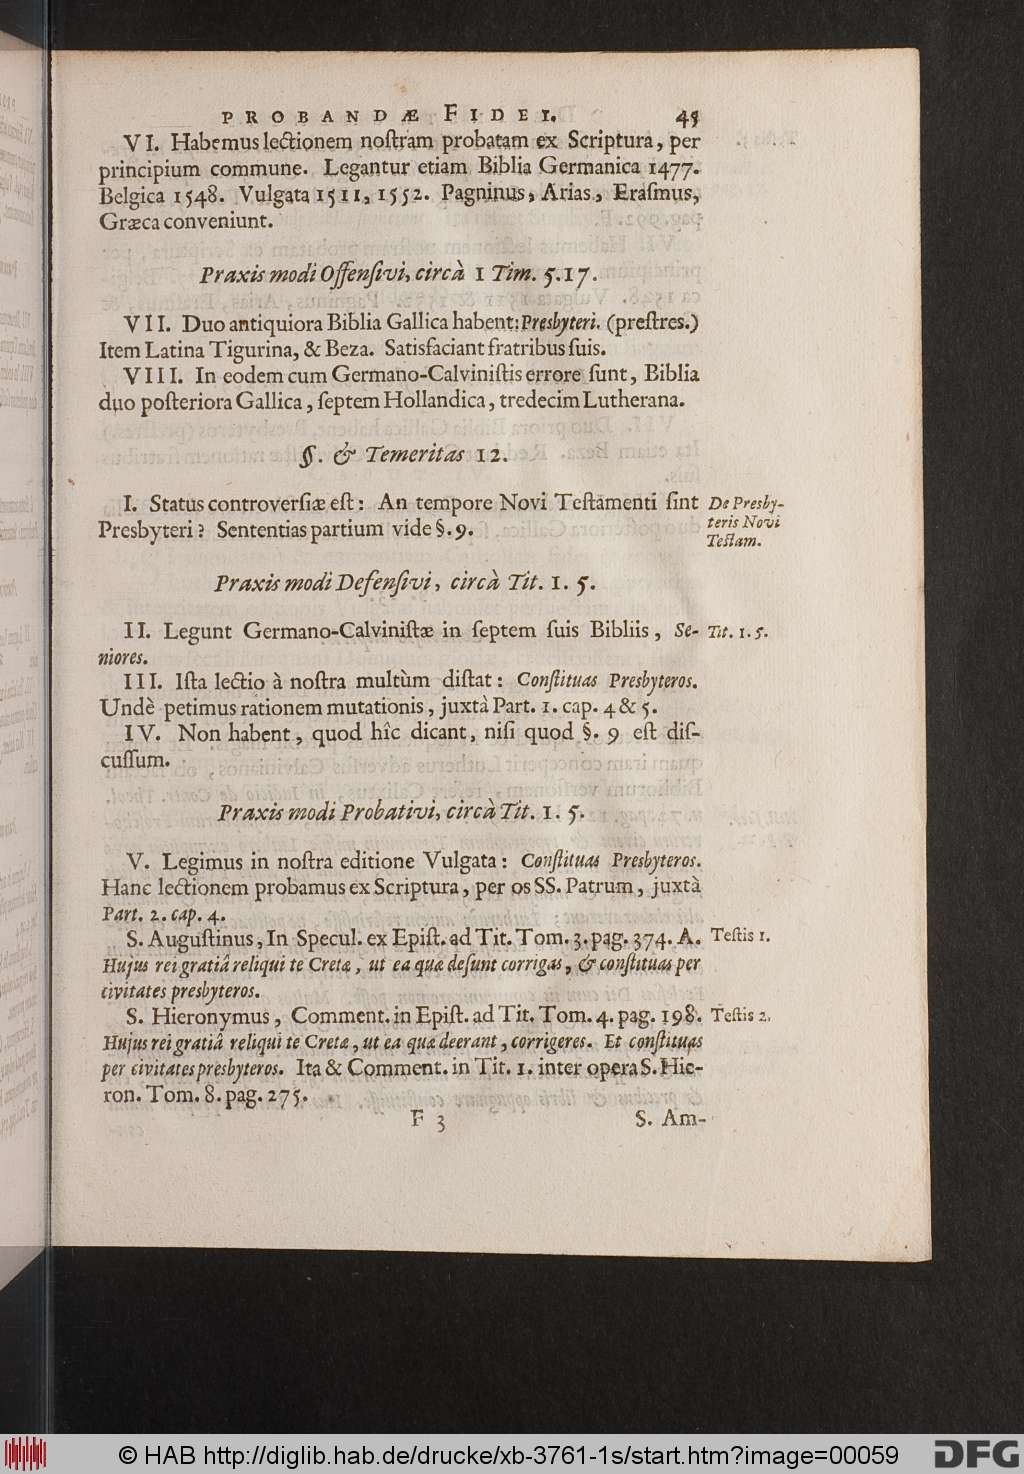 PROBANDÆ FIDEI. 45
VI. Habemus lectionem noſtram probatam ex Scriptura, per
principium commune. Legantur etiam Biblia Germanica 1477.
Belgica 1548. Vulgata 1511, 1552. Pagninus, Arias, Eraſmus,
Græca conveniunt.
Praxis modi Offenſivi, circà 1 Tim. 5. 17.
VII. Duo antiquiora Biblia Gallica habent: Presbyteri. (preſtres.)
Item Latina Tigurina, & Beza. Satisfaciant fratribus ſuis.
VIII. In eodem cum Germano-Calviniſtis errore ſunt, Biblia
duo poſteriora Gallica, ſeptem Hollandica, tredecim Lutherana.
§. & Temeritas 12.
I. Status controverſiæ eſt: An tempore Novi Teſtamenti ſint
Presbyteri? Sententias partium vide §. 9.
De Presby-
teris Novi
Teſtam.
Praxis modi Defenſivi, circà Tit. 1. 5.
II. Legunt Germano-Calviniſtæ in ſeptem ſuis Bibliis, Se-
niores.
Tit. 1. 5.
III. Iſta lectio à noſtra multùm diſtat: Conſtituas Presbyteros.
Undè petimus rationem mutationis, juxtà Part. 1. cap. 4 & 5.
IV. Non habent, quod hîc dicant, niſi quod §. 9 eſt diſ-
cuſſum.
Praxis modi Probativi, circà Tit. 1. 5.
V. Legimus in noſtra editione Vulgata: Conſtituas Presbyteros.
Hanc lectionem probamus ex Scriptura, per os SS. Patrum, juxtà
Part. 2. cap. 4.
S. Auguſtinus, In Specul. ex Epiſt. ad Tit. Tom. 3. pag. 374. A.
Teſtis 1.
Hujus rei gratiâ reliqui te Cretæ, ut ea quæ deſunt corrigas, & conſtituas per
civitates presbyteros.
S. Hieronymus, Comment. in Epiſt. ad Tit. Tom. 4. pag. 198.
Teſtis 2.
Hujus rei gratiâ reliqui te Cretæ, ut ea quæ deerant, corrigeres. Et conſtituas
per civitates presbyteros. Ita & Comment. in Tit. 1. inter opera S. Hie-
ron. Tom. 8. pag. 275.
F 3 S. Am-
© HAB http://diglib.hab.de/drucke/xb-3761-1s/start.htm?image=00059
DFG